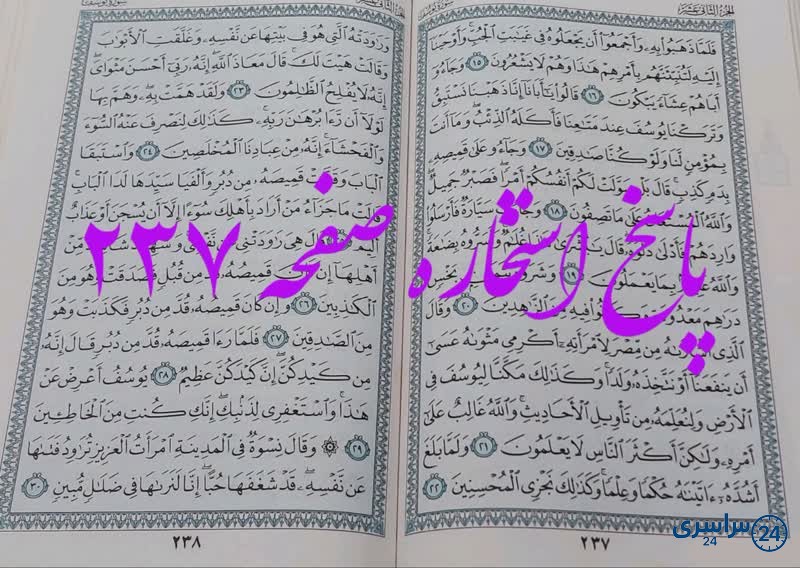 الجزء الثاني عشر
سورة يوسف
فَلَمَّا ذَهَبُوا۟ بِهِۦ وَأَجْمَعُوٓا۟ أَن يَجْعَلُوهُ فِى غَيَـٰبَتِ ٱلْجُبِّ ۚ وَأَوْحَيْنَآ
إِلَيْهِ لَتُنَبِّئَنَّهُم بِأَمْرِهِمْ هَـٰذَا وَهُمْ لَا يَشْعُرُونَ ١٥ وَجَآءُوٓ
أَبَاهُمْ عِشَآءً يَبْكُونَ ١٦ قَالُوا۟ يَـٰٓأَبَانَآ إِنَّا ذَهَبْنَا نَسْتَبِقُ
وَتَرَكْنَا يُوسُفَ عِندَ مَتَـٰعِنَا فَأَكَلَهُ ٱلذِّئْبُ ۖ وَمَآ أَنتَ
بِمُؤْمِنٍ لَّنَا وَلَوْ كُنَّا صَـٰدِقِينَ ١٧ وَجَآءُو عَلَىٰ قَمِيصِهِۦ
بِدَمٍ كَذِبٍ ۚ قَالَ بَلْ سَوَّلَتْ لَكُمْ أَنفُسُكُمْ أَمْرًا ۖ فَصَبْرٌ جَمِيلٌ ۖ
وَٱللَّهُ ٱلْمُسْتَعَانُ عَلَىٰ مَا تَصِفُونَ ١٨ وَجَآءَتْ سَيَّارَةٌ فَأَرْسَلُوا۟
وَارِدَهُمْ فَأَدْلَىٰ دَلْوَهُۥ ۖ قَالَ يَـٰبُشْرَىٰ هَـٰذَا غُلَـٰمٌ ۚ وَأَسَرُّوهُ بِضَـٰعَةً ۚ
وَٱللَّهُ عَلِيمٌۢ بِمَا يَعْمَلُونَ ١٩ وَشَرَوْهُ بِثَمَنٍۭ بَخْسٍ
دَرَٰهِمَ مَعْدُودَةٍ وَكَانُوا۟ فِيهِ مِنَ ٱلزَّٰهِدِينَ ٢٠ وَقَالَ
ٱلَّذِى ٱشْتَرَىٰهُ مِن مِّصْرَ لِٱمْرَأَتِهِۦٓ أَكْرِمِى مَثْوَىٰهُ عَسَىٰٓ
أَن يَنفَعَنَآ أَوْ نَتَّخِذَهُۥ وَلَدًا ۚ وَكَذَٰلِكَ مَكَّنَّا لِيُوسُفَ فِى
ٱلْأَرْضِ وَلِنُعَلِّمَهُۥ مِن تَأْوِيلِ ٱلْأَحَادِيثِ ۚ وَٱللَّهُ غَالِبٌ عَلَىٰٓ
أَمْرِهِۦ وَلَـٰكِنَّ أَكْثَرَ ٱلنَّاسِ لَا يَعْلَمُونَ ٢١ وَلَمَّا بَلَغَ
أَشُدَّهُۥٓ ءَاتَيْنَـٰهُ حُكْمًا وَعِلْمًا ۚ وَكَذَٰلِكَ نَجْزِى ٱلْمُحْسِنِينَ ٢٢
٢٣٧
الجزء الثاني عشر
سورة يوسف
وَرَٰوَدَتْهُ ٱلَّتِى هُوَ فِى بَيْتِهَا عَن نَّفْسِهِۦ وَغَلَّقَتِ ٱلْأَبْوَٰبَ
وَقَالَتْ هَيْتَ لَكَ ۚ قَالَ مَعَاذَ ٱللَّهِ ۖ إِنَّهُۥ رَبِّىٓ أَحْسَنَ مَثْوَاىَ ۖ
إِنَّهُۥ لَا يُفْلِحُ ٱلظَّـٰلِمُونَ ٢٣ وَلَقَدْ هَمَّتْ بِهِۦ ۖ وَهَمَّ بِهَا
لَوْلَآ أَن رَّءَا بُرْهَـٰنَ رَبِّهِۦ ۚ كَذَٰلِكَ لِنَصْرِفَ عَنْهُ ٱلسُّوٓءَ
وَٱلْفَحْشَآءَ ۚ إِنَّهُۥ مِنْ عِبَادِنَا ٱلْمُخْلَصِينَ ٢٤ وَٱسْتَبَقَا
ٱلْبَابَ وَقَدَّتْ قَمِيصَهُۥ مِن دُبُرٍ وَأَلْفَيَا سَيِّدَهَا لَدَا ٱلْبَابِ ۚ
قَالَتْ مَا جَزَآءُ مَنْ أَرَادَ بِأَهْلِكَ سُوٓءًا إِلَّآ أَن يُسْجَنَ أَوْ عَذَابٌ
أَلِيمٌ ٢٥ قَالَ هِىَ رَٰوَدَتْنِى عَن نَّفْسِى ۚ وَشَهِدَ شَاهِدٌ مِّنْ
أَهْلِهَآ إِن كَانَ قَمِيصُهُۥ قُدَّ مِن قُبُلٍ فَصَدَقَتْ وَهُوَ مِنَ
ٱلْكَـٰذِبِينَ ٢٦ وَإِن كَانَ قَمِيصُهُۥ قُدَّ مِن دُبُرٍ فَكَذَبَتْ وَهُوَ
مِنَ ٱلصَّـٰدِقِينَ ٢٧ فَلَمَّا رَءَا قَمِيصَهُۥ قُدَّ مِن دُبُرٍ قَالَ إِنَّهُۥ
مِن كَيْدِكُنَّ ۖ إِنَّ كَيْدَكُنَّ عَظِيمٌ ٢٨ يُوسُفُ أَعْرِضْ عَنْ
هَـٰذَا ۚ وَٱسْتَغْفِرِى لِذَنۢبِكِ ۖ إِنَّكِ كُنتِ مِنَ ٱلْخَاطِـِٔينَ
٢٩ ۞ وَقَالَ نِسْوَةٌ فِى ٱلْمَدِينَةِ ٱمْرَأَتُ ٱلْعَزِيزِ تُرَٰوِدُ فَتَىٰهَا
عَن نَّفْسِهِۦ ۖ قَدْ شَغَفَهَا حُبًّا ۖ إِنَّا لَنَرَىٰهَا فِى ضَلَـٰلٍ مُّبِينٍ ٣٠
٢٣٨
پاسخ استخاره صفحه ۲۳۷
سراسری
24
24